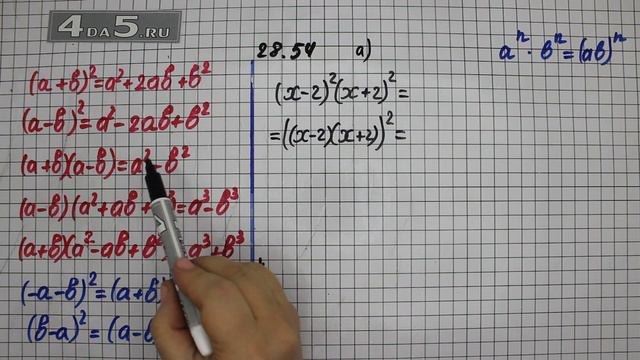 4DA5.RU
(a+b)²=a²+2ab+b²
(a-b)²=a²-2ab+b²
(a+b)(a-b)=a²-b²
(a-b)(a²+ab+ ³=a³-b³
(a+b)(a²-ab+b a³+b³
(-a-b)²=(a+b)
(b-a)²=(a-b
28.54 a)
(x-2)²(x+2)²=
=((x-2)(x+2))²=
aⁿ·bⁿ=(ab)ⁿ